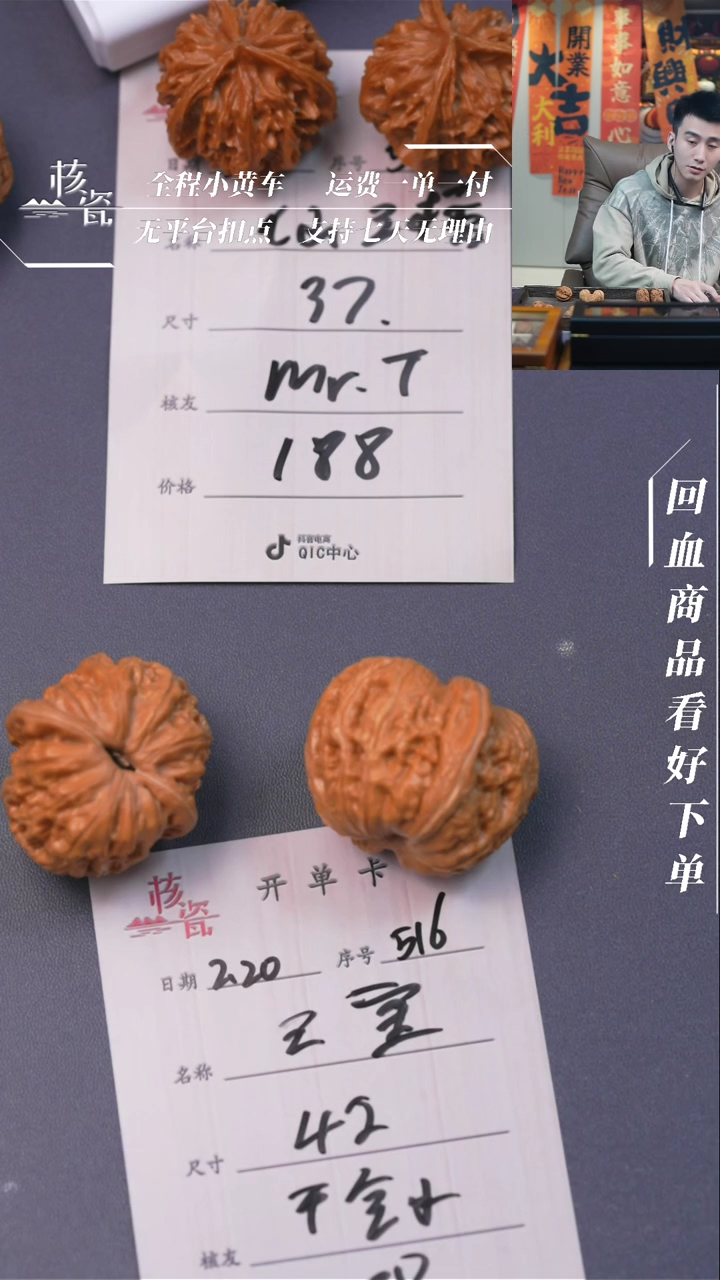 開業
大吉
大利
事事如意
心
財興
核瓷
全程小黄车 运费一单一付
无平台扣点 支持七天无理由
日期 序号
名称
尺寸 37.
核友 Mr. T
价格 188
抖音电商
QIC中心
回血商品看好下单
核瓷
开单卡
日期 2.20 序号 516
名称
尺寸 42
核友